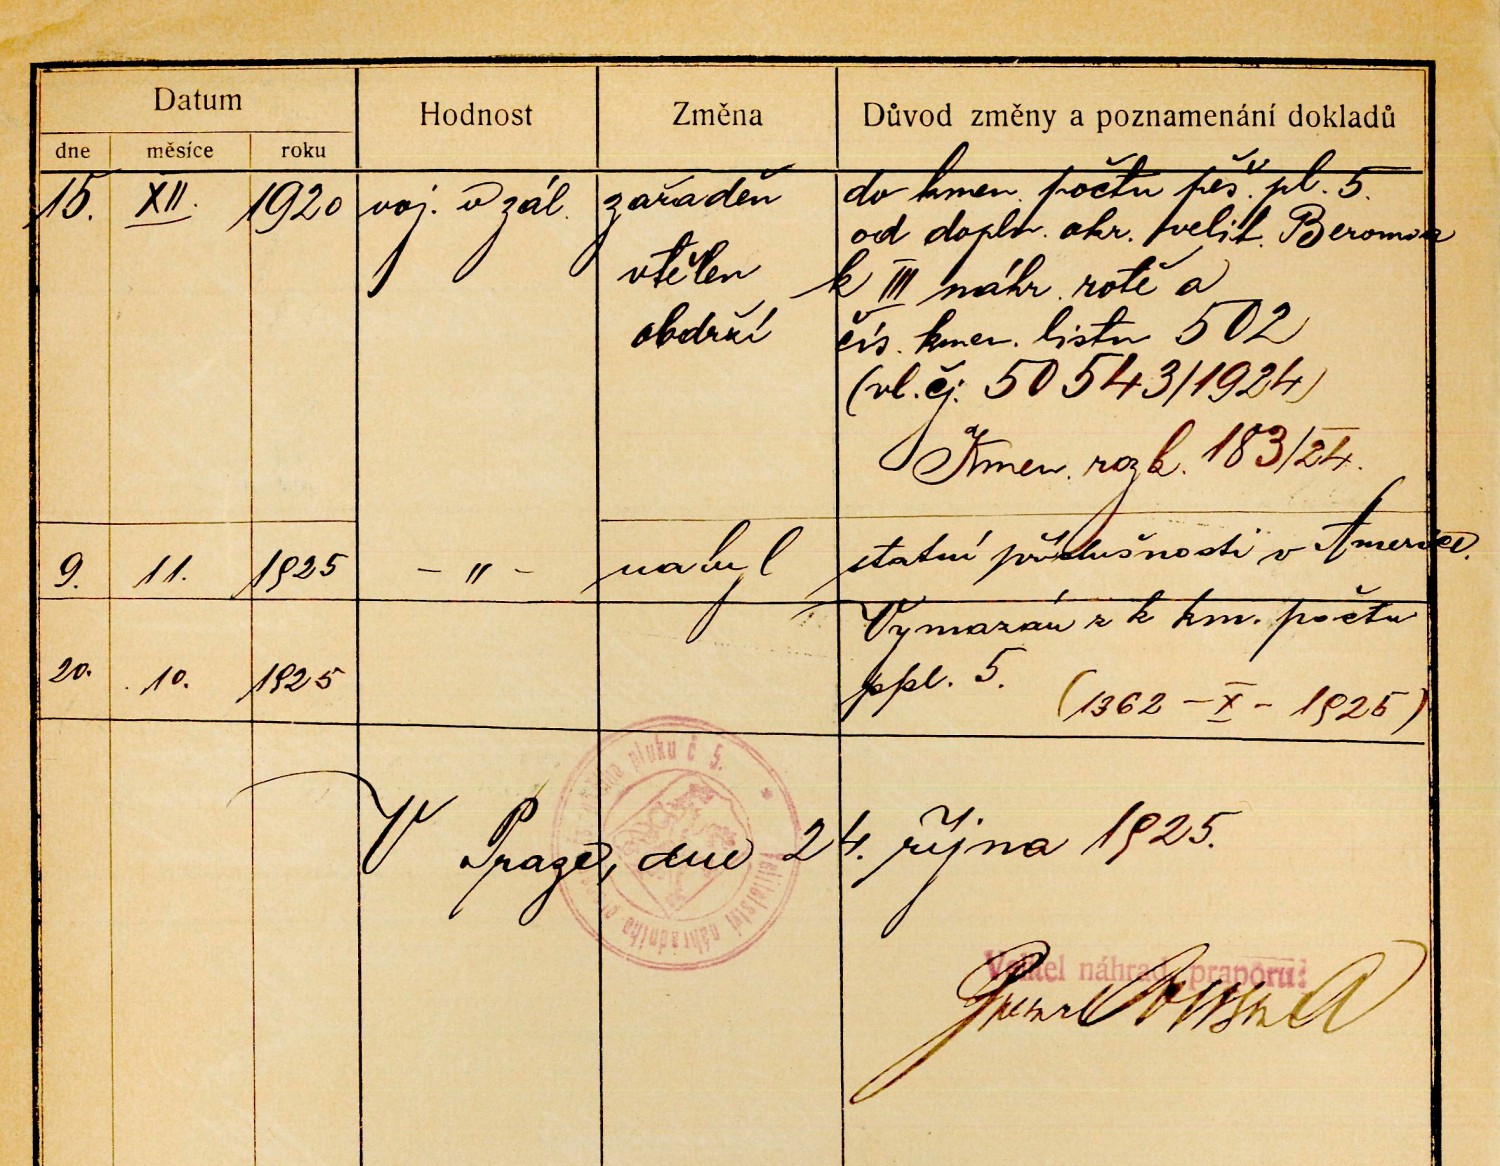 Datum Hodnost Změna Důvod změny a poznamenání dokladů
dne měsíce roku
15. XII. 1920 voj. v zál. zařaděn do kmen. počtu pěš. pl. 5.
od dopln. okr. velit. Beroun
vtělen k III náhr. rotě a
obdrží čís. kmen. listu 502
(vl. čj. 50543/1924)
Kmen. rozk. 183/24.
9. 11. 1925 - " - nabyl statní příslušnosti v Americe.
Vymazán z k km. počtu
20. 10. 1925 ppl. 5. (1362 - X - 1925)
pluku č 5.
V Praze, dne 24. října 1925.
velitelství náhradního
Velitel náhrad. praporu: